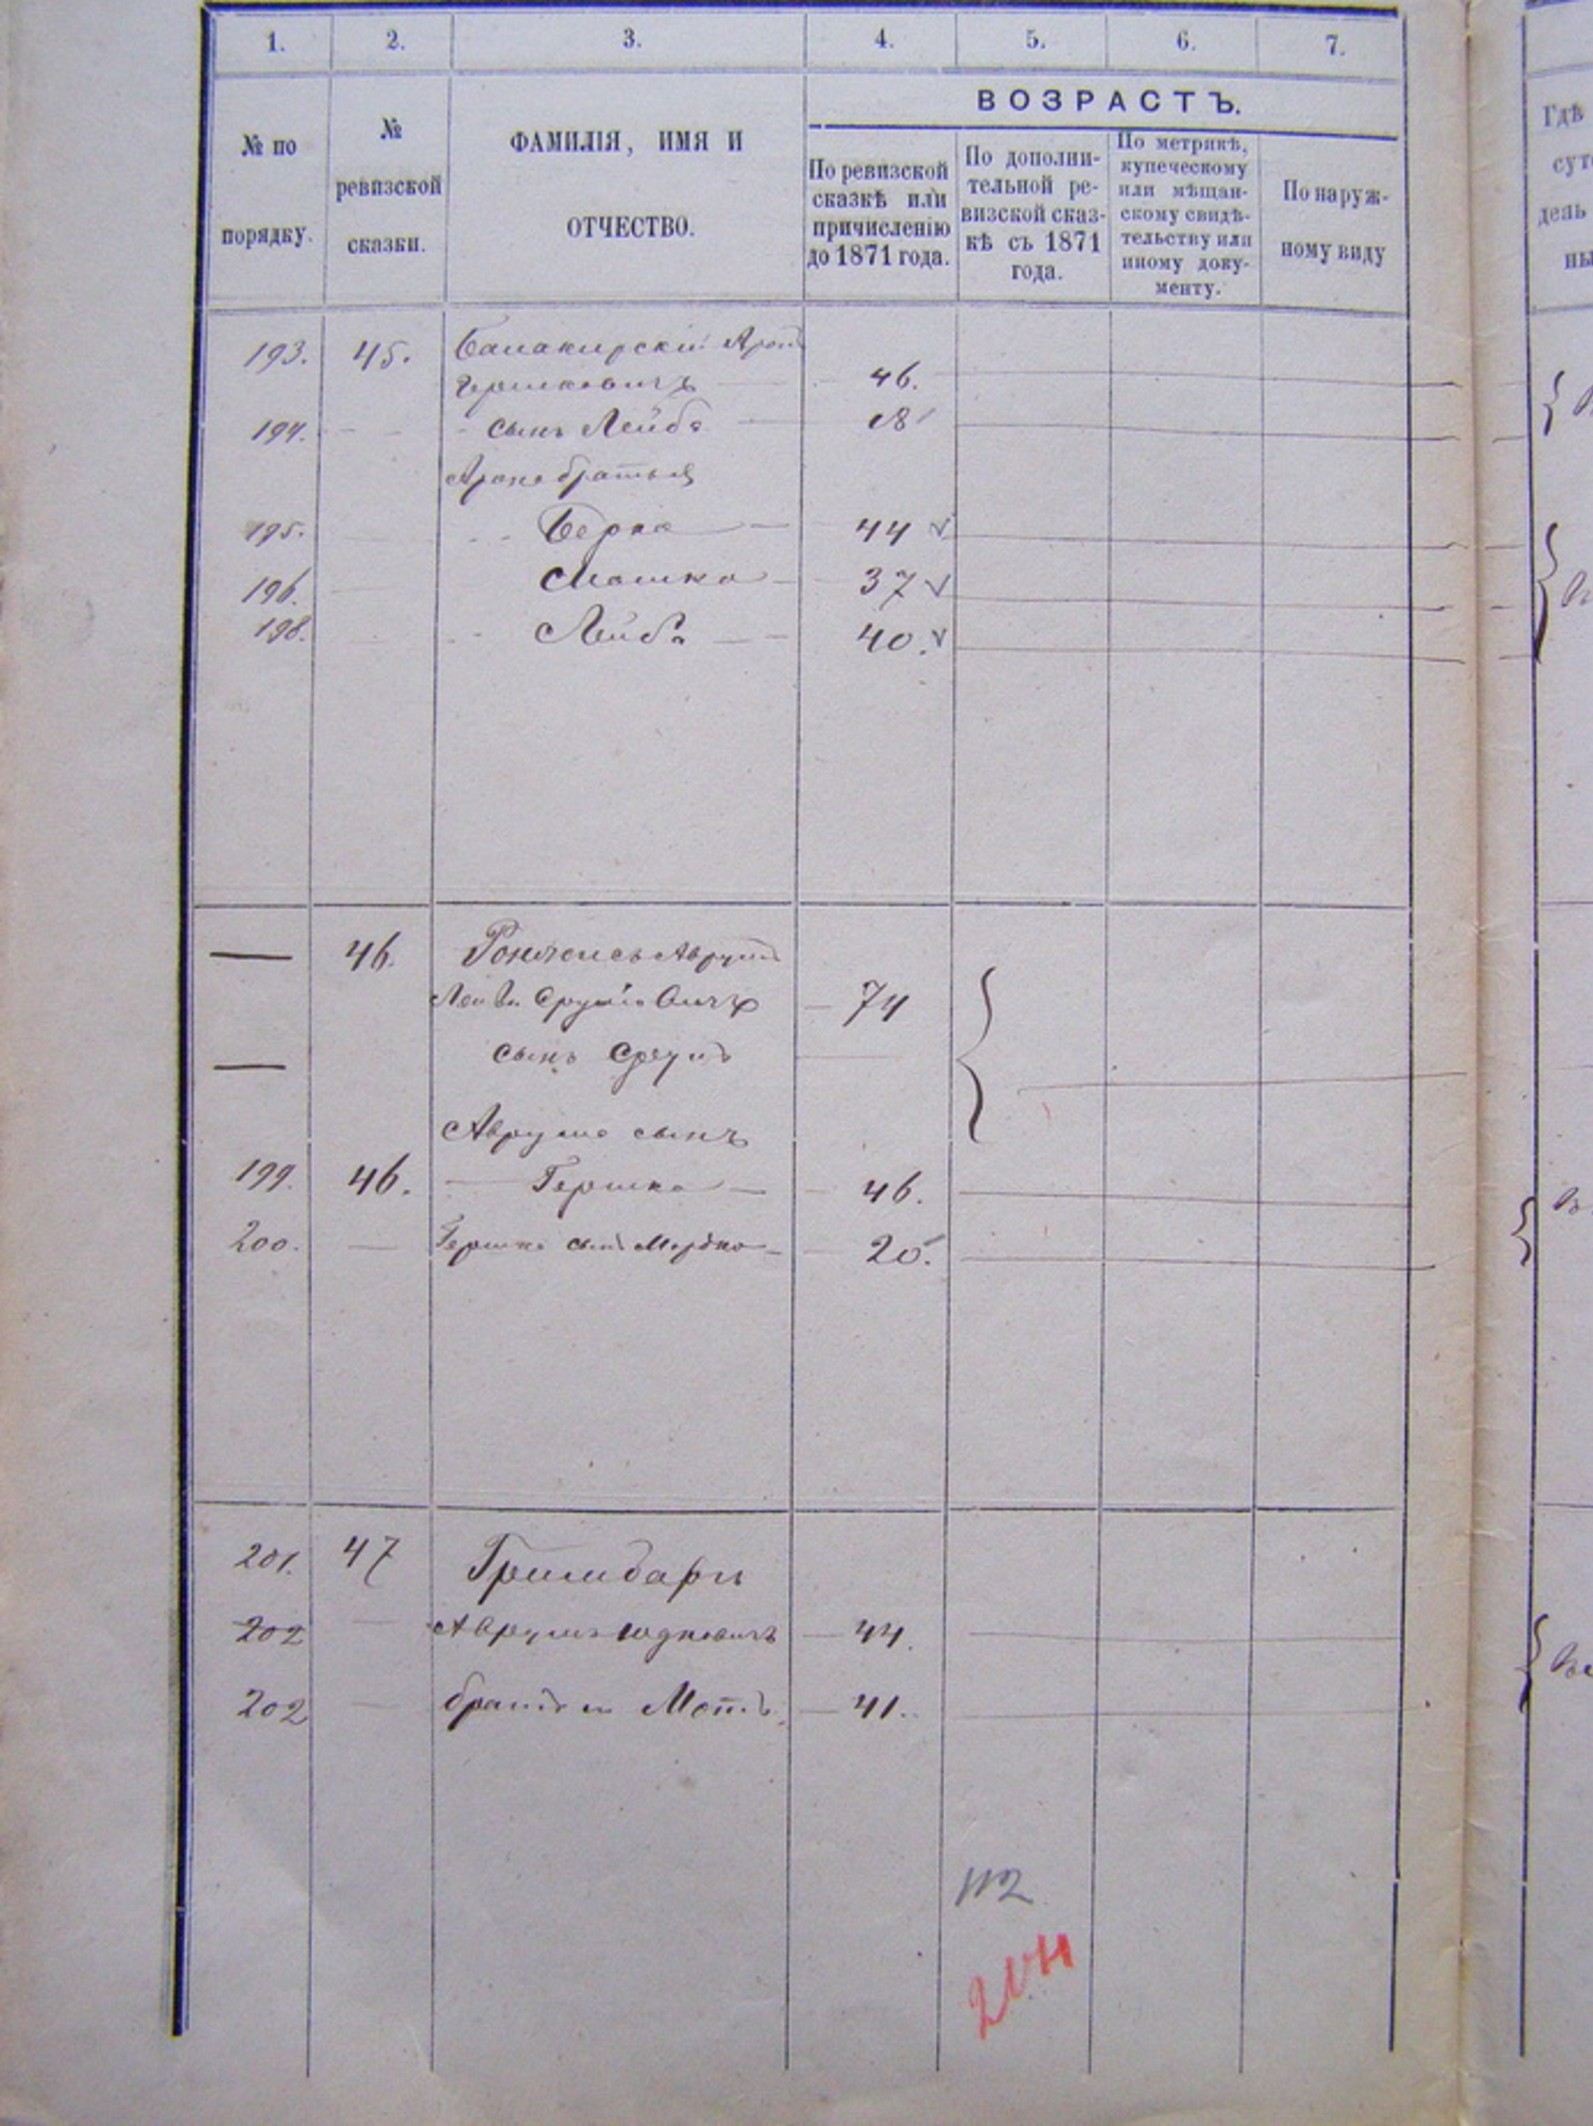 1. 2. 3. 4. 5. 6. 7.
№ по порядку.
№ ревизской сказки.
ФАМИЛІЯ, ИМЯ И ОТЧЕСТВО.
ВОЗРАСТЪ.
По ревизской сказкѣ или причисленію до 1871 года.
По дополни-
тельной ре-
визской сказ-
кѣ съ 1871
года.
По метрикѣ,
купеческому
или мѣщан-
скому свидѣ-
тельству или
иному доку-
менту.
По наруж-
ному виду
Гдѣ
193. 45.
Гершковичъ 46.
194. сынъ Лейба 18
Арона братья
195. Берко 44
196. Мошко 37
198. Лейба 40.
46. Аврумъ
74
сынъ Сруль
Аврума сынъ
199. 46. Гершко 46.
200. Гершка сынъ Мордко 20.
201. 47
202 Аврумъ Юдковичъ 44.
202 братъ 41.
112
204